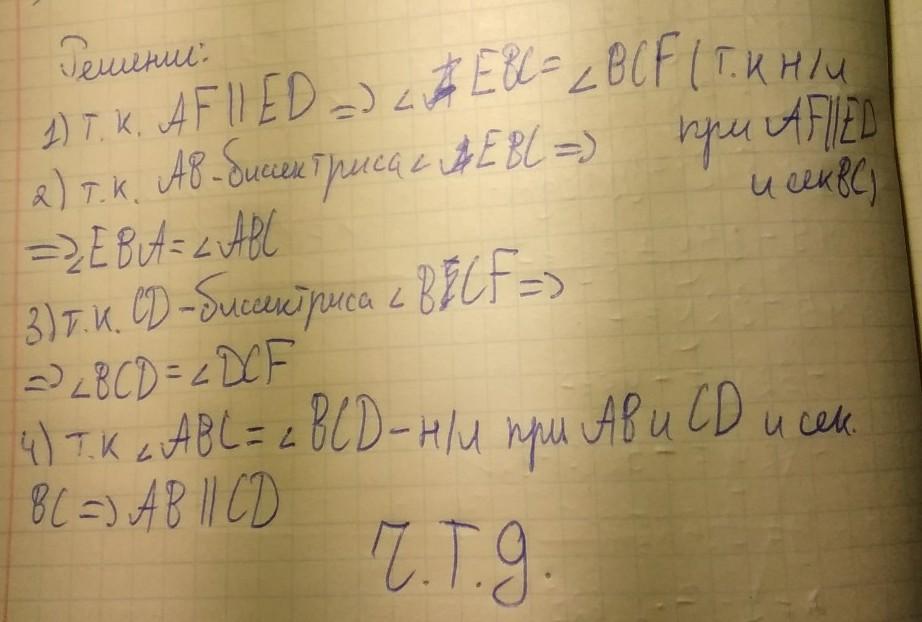 Решение:
1) т.к. AF || ED => ∠ EBC = ∠ BCF (т.к н/л
при AF||ED
и сек BC)
2) т.к. AB-биссектриса ∠ EBC =>
=> ∠EBA = ∠ABC
3) т.к. CD-биссектриса ∠ BCF =>
=> ∠BCD = ∠DCF
4) т.к ∠ABC = ∠BCD - н/л при AB и CD и сек.
BC => AB || CD
Ч.Т.Д.